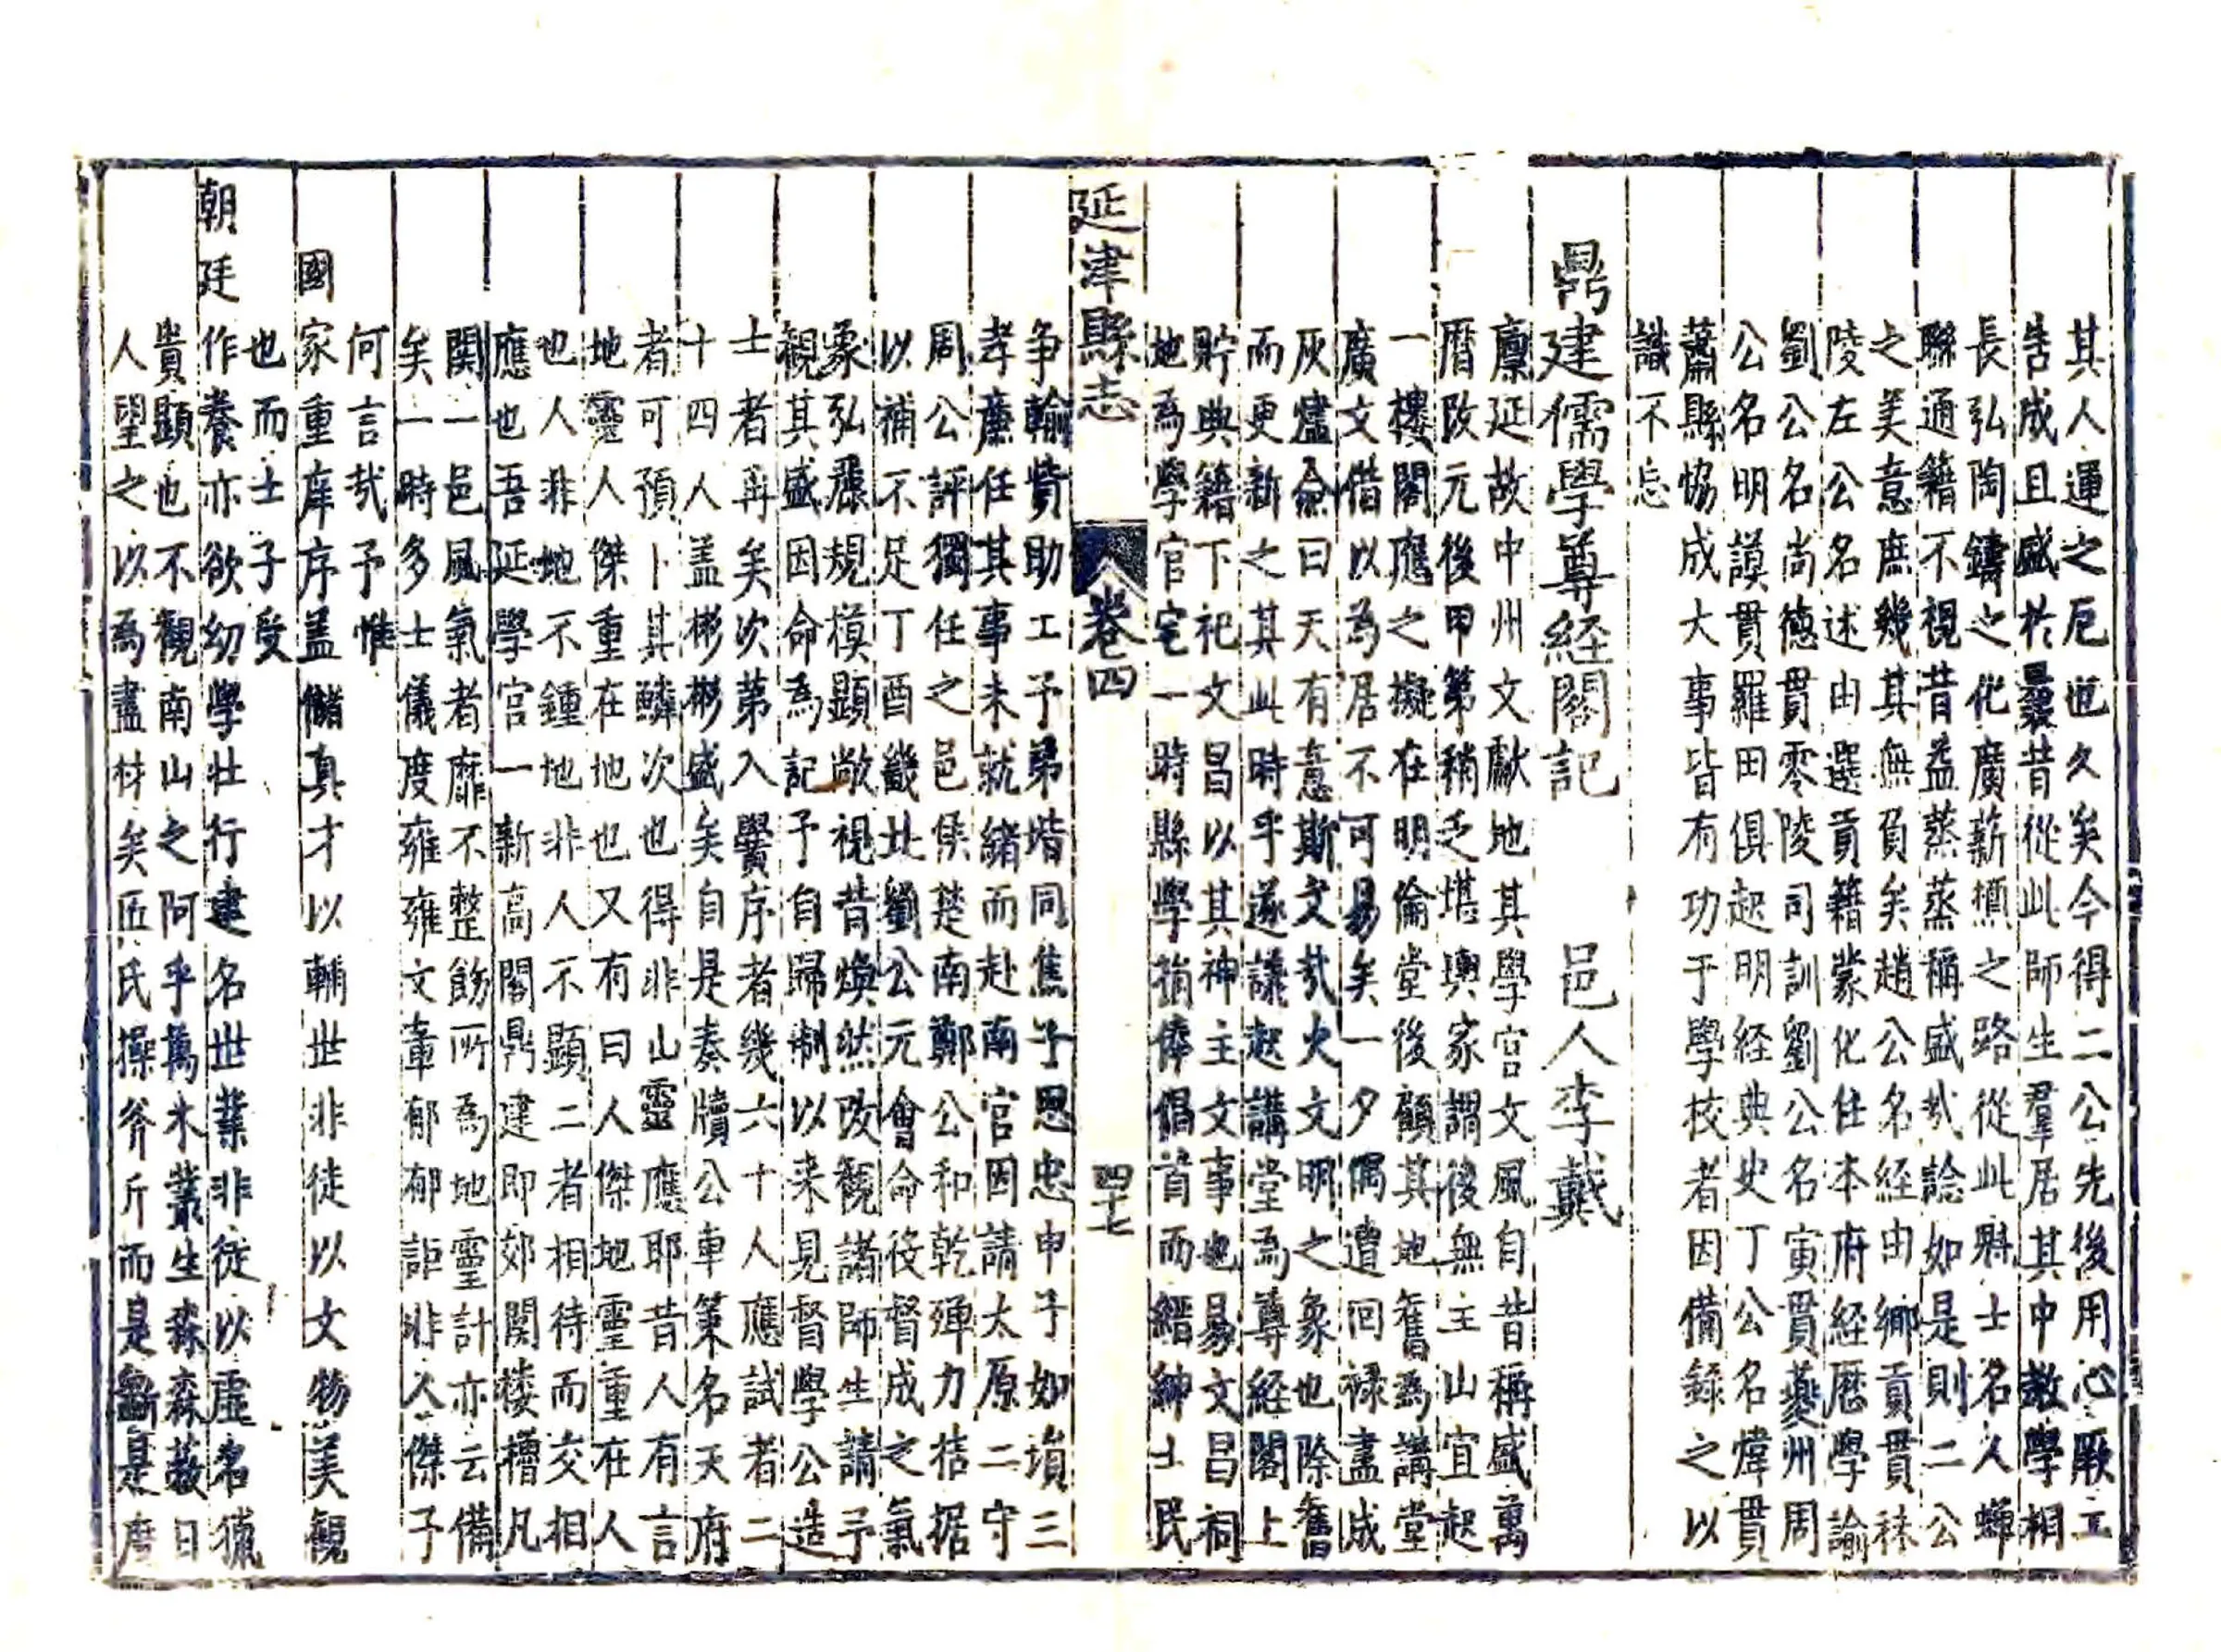 其人運之厄也久矣今得二公先後用心厥工
告成且盛於曩昔從此師生羣居其中教學相
長弘陶鑄之化廣薪槱之路從此縣士名人蟬
聯通籍不視昔益蒸蒸稱盛㢤諗如是則二公
之美意庶幾其無負矣趙公名経由鄉貢貫秣
陵左公名述由選貢籍蒙化任本府経歷學諭
劉公名尚德貫零陵司訓劉公名寅貫夔州周
公名明謨貫羅田俱起明経典史丁公名煒貫
蕭縣恊成大事皆有功于學校者因備錄之以
識不忘
鼎建儒學尊経閣記 邑人李戴
廩延故中州文獻地其學宫文風自昔稱盛萬
曆改元後甲第稍乏堪輿家謂後無主山宜起
一樓閣應之擬在明倫堂後顧其地舊爲講堂
廣文借以為居不可易矣一夕偶遭回祿盡成
灰燼僉曰天有意斯文㢤火文明之象也除舊
而更新之其此時乎遂議起講堂爲尊経閣上
貯典籍下祀文昌以其神主文事也易文昌祠
地為學官宅一時縣學捐俸倡首而縉紳士民
延津縣志 卷四 四十七
争輸貲助工予弟堦同焦子思忠申子如塤三
孝廉任其事未就緒而赴南宫因請太原二守
周公評獨任之邑侯楚南鄭公和乾殫力拮据
以補不足丁酉畿北劉公元會命役督成之氣
象弘䴡規模顯敞視昔煥然改觀諸師生請予
觀其盛因命為記予自歸制以来見督學公造
士者再矣次第入黌序者幾六十人應試者二
十四人盖彬彬盛矣自是奏牘公車策名天府
者可預卜其鱗次也得非山靈應耶昔人有言
地靈人傑重在地也又有曰人傑地靈重在人
也人非地不鍾地非人不顯二者相待而交相
應也吾延學宫一新高閣鼎建即郊関楼櫓凡
関一邑風氣者靡不整飭所爲地靈計亦云備
矣一時多士儀度雍雍文章郁郁詎非人傑予
何言㢤予惟
國家重庠序盖儲真才以輔世非徒以文物美觀
也而士子受
朝廷作養亦欲幼學壮行建名世業非徒以虛名獵
貴顯也不觀南山之阿乎萬木叢生森森蔽日
人望之以爲盡材矣匠氏操斧斤而是斲是度